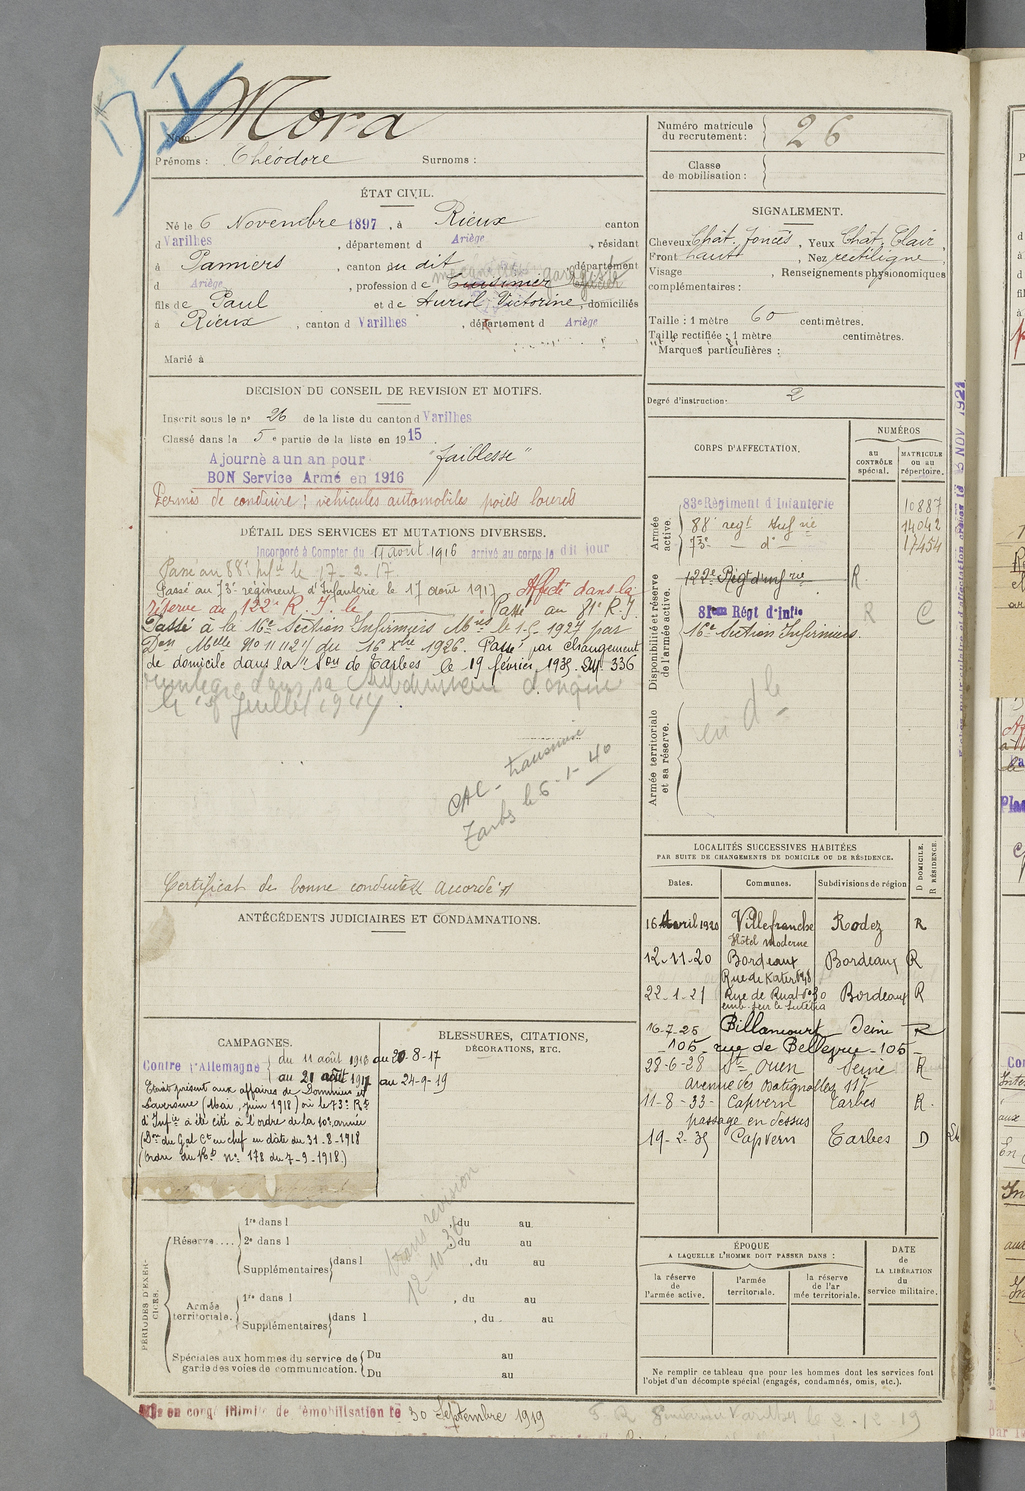 Mora
Nom :
Prénoms : Théodore Surnoms :
Numéro matricule du recrutement : 26
Classe de mobilisation :
ÉTAT CIVIL.
Né le 6 Novembre 1897, à Rieux canton
d Varilhes, département d Ariège, résidant
à Pamiers, canton du dit, département
d Ariège, profession de Cuisinier garagiste
fils de Paul et de Auriol Victorine domiciliés
à Rieux, canton d Varilhes, département d Ariège
Marié à
SIGNALEMENT.
Cheveux Chât. foncés, Yeux Chât. Clair,
Front haut, Nez rectiligne,
Visage , Renseignements physionomiques
complémentaires :
Taille : 1 mètre 60 centimètres.
Taille rectifiée : 1 mètre centimètres.
Marques particulières :
Degré d'instruction : 2
DÉCISION DU CONSEIL DE REVISION ET MOTIFS.
Inscrit sous le n° 26 de la liste du canton d Varilhes
Classé dans la 5e partie de la liste en 1915
Ajourné a un an pour "faiblesse"
BON Service Armé en 1916
Permis de conduire : véhicules automobiles poids lourds
DÉTAIL DES SERVICES ET MUTATIONS DIVERSES.
Incorporé à Compter du 11 août 1916 arrivé au corps le dit jour
Passé au 88e Inf le 17-2-17
Passé au 73e régiment d'Infanterie le 17 août 1917 Affecté dans la
réserve au 122e R.I. le Passé au 81e R.I.
Passé à la 16e Section Infirmiers Mres le 1-5-1927 par
Don Melle No 11112/ du 16 Xbre 1926. Passé par changement
de domicile dans la Son de Tarbes le 19 février 1935. 336
réintégré dans sa Subdivision d'origine
le 1er Juillet 1944
CAC - transmise
Tarbes le 6-1-40
Certificat de bonne conduite "Accordé"
CORPS D'AFFECTATION.
NUMÉROS
au CONTRÔLE spécial.
MATRICULE ou au répertoire.
Armée active.
83e Régiment d'Infanterie 10887
88e regt Infrie 14042
73e — do — 17454
Disponibilité et réserve de l'armée active.
122e Régt d'infrie R
81eme Régt d'Infie R C
16e Section Infirmiers.
Armée territoriale et sa réserve.
en dle
LOCALITÉS SUCCESSIVES HABITÉES
PAR SUITE DE CHANGEMENTS DE DOMICILE OU DE RÉSIDENCE.
Dates. Communes. Subdivisions de région D DOMICILE. R RÉSIDENCE.
16 Avril 1920 Villefranche Rodez R
Hôtel Moderne
12-11-20 Bordeaux Bordeaux R
22-1-21 Bordeaux R
16-7-26 Billancourt Seine R
105 rue de Bellevue - 105
28-6-28 St Ouen Seine R
avenue des Batignolles 117
11-8-33 Capvern Tarbes R.
passage en dessus
19-2-35 Capvern Tarbes D
ANTÉCÉDENTS JUDICIAIRES ET CONDAMNATIONS.
CAMPAGNES.
Contre l'Allemagne du 11 août 1916 au 20-8-17
au 21 août 1917 au 24-9-19
Etait présent aux affaires de
(Mai, juin 1918) où le 73e Rt
d'Infie a été cité à l'ordre de la 10e armée
(Don du Gal Ct en chef en date du 31-8-1918
(ordre du Rt n° 178 du 7-9-1918)
BLESSURES, CITATIONS, DÉCORATIONS, ETC.
PÉRIODES D'EXERCICES.
Réserve....
1re dans l , du au
2e dans l , du au
Supplémentaires dans l , du au
Armée territoriale.
1re dans l , du au
Supplémentaires dans l , du au
Spéciales aux hommes du service de garde des voies de communication.
Du au
Du au
Sans révision
12-10-36
ÉPOQUE
A LAQUELLE L'HOMME DOIT PASSER DANS :
la réserve de l'armée active.
l'armée territoriale.
la réserve de l'armée territoriale.
DATE DE LA LIBÉRATION du service militaire.
Ne remplir ce tableau que pour les hommes dont les services font
l'objet d'un décompte spécial (engagés, condamnés, omis, etc.).
Mis en congé illimité de démobilisation le 30 Septembre 1919